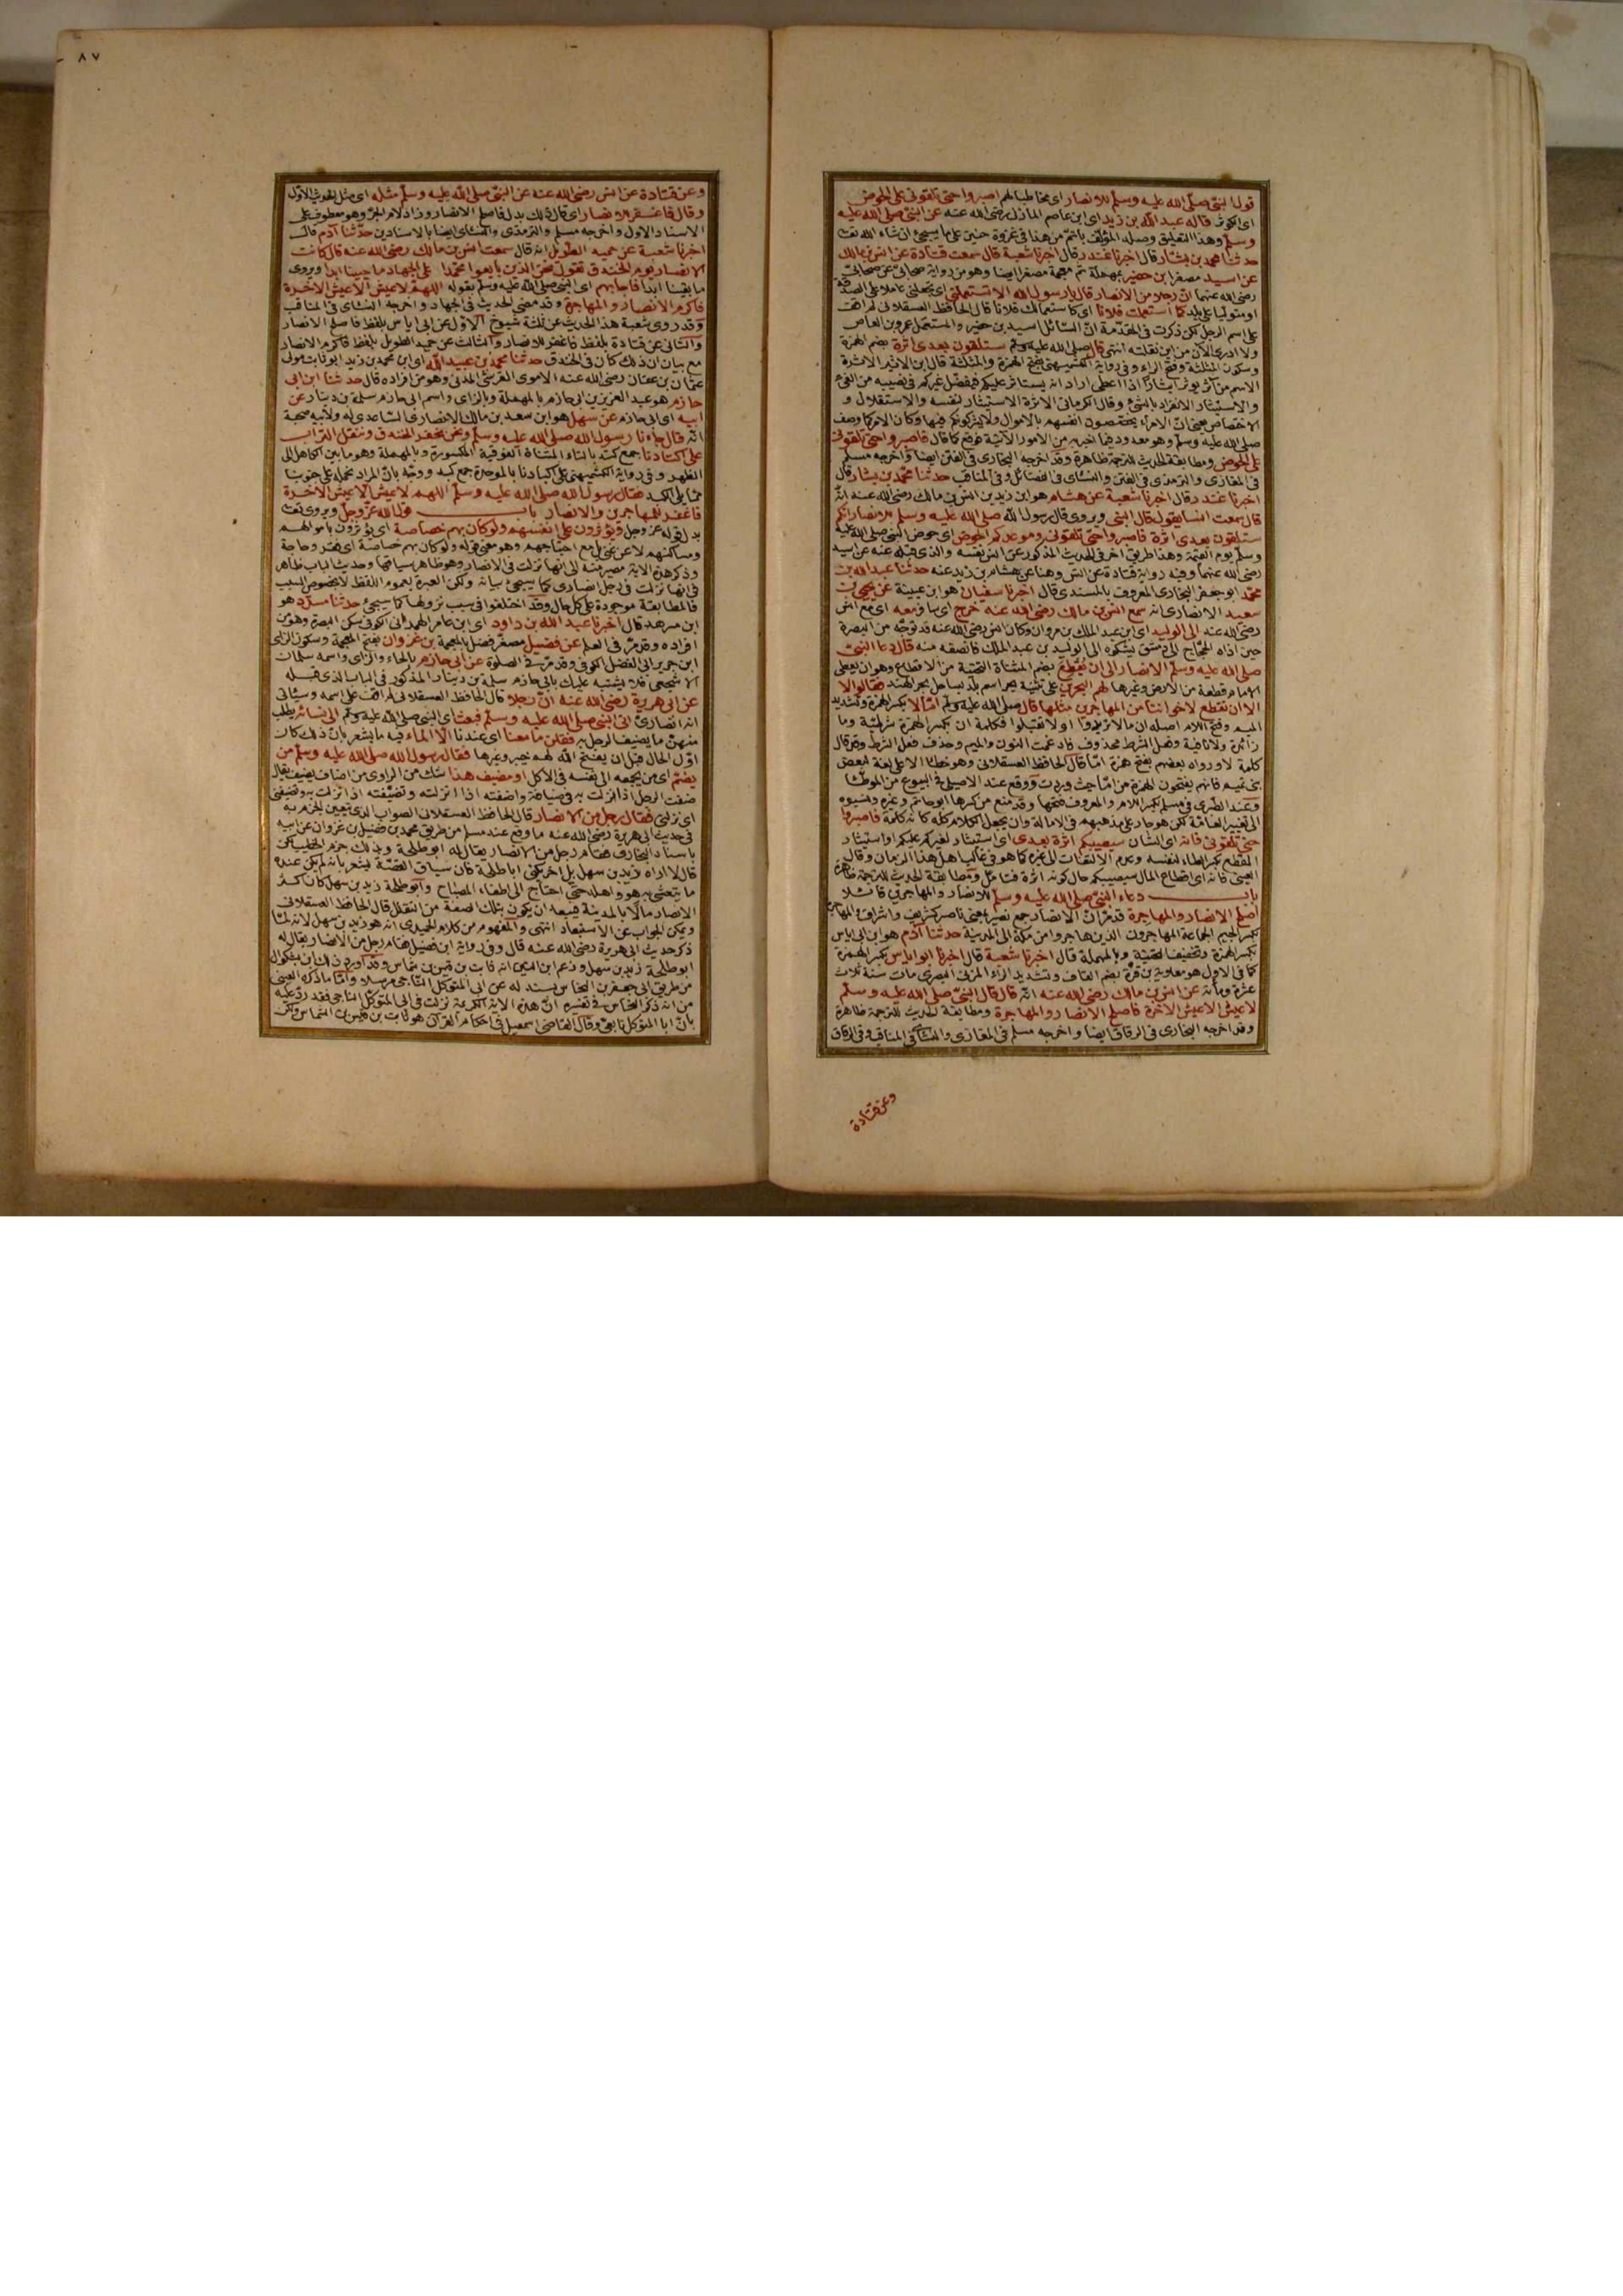 قول النبي صلى الله عليه وسلم للانصار اى مخاطبا لهم اصبروا حتى تلقونى على الحوض
اى الكوثر قاله عبد الله بن زيد اى ابن عاصم المازنى رضى الله عنه عن النبي صلى الله عليه
وسلم وهذا التعليق وصله المؤلف باتم من هذا فى غزوة حنين على ما سيجئ ان شاء الله تعالى
حدثنا محمد بن بشار قال اخبرنا غندر قال اخبرنا شعبة قال سمعت قتادة عن انس بن مالك
عن اسيد مصغرا بن حضير بمهملة ثم معجمة مصغرا ايضا وهو من رواية صحابى عن صحابى
رضى الله عنهما ان رجلا من الانصار قال يا رسول الله الا تستعملنى اى تجعلنى عاملا على الصدقة
او متوليا على بلد كما استعملت فلانا اى كاستعمالك فلانا قال الحافظ العسقلانى لم اقف
على اسم الرجل لكن ذكرت فى المقدمة ان السائل اسيد بن حضير والمستعمل عمرو بن العاص
ولا ادرى الآن من اين نقلته انتهى قال صلى الله عليه وسلم ستلقون بعدى اثرة بضم الهمزة
وسكون المثلثة وفتح الراء وفى رواية الكشميهنى بفتح الهمزة والمثلثة قال ابن الاثير الاثرة
الاسم من آثر يوثر ايثارا اذا اعطى اراد انه يستاثر عليكم فيفضل غيركم فى نصيبه من الفئ
والاستيثار الانفراد بالشئ وقال الكرمانى الاثرة الاستيثار لنفسه والاستقلال و
الاختصاص يعنى ان الامراء يختصون انفسهم بالاموال ولا يشركونكم فيها وكان الامر كما وصف
صلى الله عليه وسلم وهو معدود فيما اخبر به من الامور الآتية فوقع كما قال فاصبروا حتى تلقونى
على الحوض ومطابقة الحديث للترجمة ظاهرة وقد اخرجه البخارى فى الفتن ايضا واخرجه مسلم
فى المغازى والترمذى فى الفتن والنسائى فى الفضائل وفى المناقب حدثنا محمد بن بشار قال
اخبرنا غندر قال اخبرنا شعبة عن هشام هو ابن زيد بن انس بن مالك رضى الله عنه انه
قال سمعت انسا يقول قال النبي ويروى قال رسول الله صلى الله عليه وسلم للانصار انكم
ستلقون بعدى اثرة فاصبروا حتى تلقونى وموعدكم الحوض اى حوض النبي صلى الله عليه
وسلم يوم القيمة وهذا طريق آخر فى الحديث المذكور عن انس نفسه والذى قبله عنه عن اسيد
رضى الله عنهما وفيه رواية قتادة عن انس وهنا عن هشام بن زيد عنه حدثنا عبد الله بن
محمد ابو جعفر البخارى المعروف بالمسندى قال اخبرنا سفيان هو ابن عيينة عن يحيى بن
سعيد الانصارى انه سمع انس بن مالك رضى الله عنه خرج اى سافر معه اى مع انس
رضى الله عنه الى الوليد اى ابن عبد الملك بن مروان وكان انس رضى الله عنه قد توجه من البصرة
حين اذاه الحجاج الى دمشق يشكوه الى الوليد بن عبد الملك فانصفه منه قال دعا النبي
صلى الله عليه وسلم الانصار الى ان يقطع بضم المثناة التحتية من الاقطاع وهو ان يعطى
الامام قطعة من الارض وغيرها لهم البحرين على تثنية بحر اسم بلد بساحل بحر الهند فقالوا لا
الا ان تقطع لاخواننا من المهاجرين مثلها قال صلى الله عليه وسلم اما لا بكسر الهمزة وتشديد
الميم وفتح اللام اصله ان ما لا تريدوا او لا تقبلوا فكلمة ان بكسر الهمزة شرطية وما
زائدة ولا نافية وفعل الشرط محذوف فادغمت النون والميم وحذف فعل الشرط وقد قال
كلمة لا ورواه بعضهم بفتح همزة اما قال الحافظ العسقلانى وهو خطا الا على لغة لبعض
بنى تميم فانهم يفتحون الهمزة من اما حيث وردت ووقع عند الاصيلى فى البيوع من الموطا
وعند الطبرى فى مسلم بكسر اللام والمعروف فتحها وقد منع من كسرها ابو حاتم وغيره ونسبوه
الى تغيير العامة لكن هو جار على مذهبهم فى الامالة وان يجعل الكلام كله كانه كلمة فاصبروا
حتى تلقونى فانه اى الشان سيصيبكم اثرة بعدى اى استيثار لغيركم عليكم او استيثار
المقطع بكسر الطاء لنفسه وعدم الالتفات الى غيره كما هو فى غالب اهل هذا الزمان وقال
العينى فانه اى اقطاع المال سيصيبكم حال كونه اثرة فتامل ومطابقة الحديث للترجمة ظاهرة
باب دعاء النبي صلى الله عليه وسلم للانصار والمهاجرين قائلا
اصلح الانصار والمهاجرة قد مر ان الانصار جمع نصير بمعنى ناصر كشريف واشراف والمهاجرة
بكسر الجيم الجماعة المهاجرون الذين هاجروا من مكة الى المدينة حدثنا آدم هو ابن ابى اياس
بكسر الهمزة وتخفيف التحتية وبالمهملة قال اخبرنا شعبة قال اخبرنا ابو اياس بكسر الهمزة
كما فى الاول هو معاوية بن قرة بضم القاف وتشديد الراء المزنى البصرى مات سنة ثلاث
عشرة ومائة عن انس بن مالك رضى الله عنه انه قال قال النبي صلى الله عليه وسلم
لا عيش الا عيش الآخرة فاصلح الانصار والمهاجرة ومطابقة الحديث للترجمة ظاهرة
وقد اخرجه البخارى فى الرقاق ايضا واخرجه مسلم فى المغازى والنسائى فى المناقب وفى الرقاق
وعن قتادة
٨٧
وعن قتادة عن انس رضى الله عنه عن النبي صلى الله عليه وسلم مثله اى مثل الحديث الاول
وقال فاغفر للانصار اى قال ذلك بدل فاصلح الانصار وزاد لام الجر وهو معطوف على
الاسناد الاول واخرجه مسلم والترمذى والنسائى ايضا بالاسنادين حدثنا آدم قال
اخبرنا شعبة عن حميد الطويل انه قال سمعت انس بن مالك رضى الله عنه قال كانت
الانصار يوم الخندق تقول نحن الذين بايعوا محمدا على الجهاد ما حيينا ابدا ويروى
ما بقينا ابدا فاجابهم اى النبي صلى الله عليه وسلم بقوله اللهم لا عيش الا عيش الآخرة
فاكرم الانصار والمهاجرة وقد مضى الحديث فى الجهاد واخرجه النسائى فى المناقب
وقد روى شعبة هذا الحديث عن ثلثة شيوخ الاول عن ابى اياس بلفظ فاصلح الانصار
والثانى عن قتادة بلفظ فاغفر للانصار والثالث عن حميد الطويل بلفظ فاكرم الانصار
مع بيان ان ذلك كان فى الخندق حدثنا محمد بن عبيد الله اى ابن محمد بن زيد ابو ثابت مولى
عثمان بن عفان رضى الله عنه الاموى القرشى المدنى وهو من افراده قال حدثنا ابن ابى
حازم هو عبد العزيز بن ابى حازم بالمهملة وبالزاى واسم ابى حازم سلمة بن دينار عن
ابيه اى ابى حازم عن سهل هو ابن سعد بن مالك الانصارى الساعدى له ولابيه صحبة
انه قال جاءنا رسول الله صلى الله عليه وسلم ونحن نحفر الخندق وننقل التراب
على اكتادنا جمع كتد بالتاء المثناة الفوقية المكسورة وبالمهملة وهو ما بين الكاهل الى
الظهر وفى رواية الكشميهنى على اكبادنا بالموحدة جمع كبد ووجه بان المراد نحمله على جنوبنا
مما يلى الكبد فقال رسول الله صلى الله عليه وسلم اللهم لا عيش الا عيش الآخرة
فاغفر للمهاجرين والانصار باب قول الله عز وجل ويروى
بدل قوله عز وجل ويؤثرون على انفسهم ولو كان بهم خصاصة اى يؤثرون باموالهم
ومساكنهم لا عن غنى بل مع احتياجهم وهو معنى قوله ولو كان بهم خصاصة اى فقر وحاجة
وذكر هذه الآية مصير منه الى انها نزلت فى الانصار وهو ظاهر سياقها وحديث الباب ظاهر
فى انها نزلت فى رجل انصارى كما سيجئ بيانه ولكن العبرة بعموم اللفظ لا بخصوص السبب
فالمطابقة موجودة على كل حال وقد اختلفوا فى سبب نزولها كما سيجئ حدثنا مسدد هو
ابن مسرهد قال اخبرنا عبد الله بن داود اى ابن عامر الهمدانى الكوفى سكن البصرة وهو من
افراده وقد مر فى العلم عن فضيل مصغر فضل بالمعجمة بن غزوان بفتح المعجمة وسكون الزاى
ابن جرير ابى الفضل الكوفى وقد مر فى الصلوة عن ابى حازم بالحاء والزاى واسمه سلمان
الاشجعى فلا يشتبه عليك بابى حازم سلمة بن دينار المذكور فى الباب الذى قبله
عن ابى هريرة رضى الله عنه ان رجلا قال الحافظ العسقلانى لم اقف على اسمه وسيأتى
انه انصارى اتى النبي صلى الله عليه وسلم فبعث اى النبي صلى الله عليه وسلم الى نسائه يطلب
منهن ما يضيف الرجل به فقلن ما معنا اى عندنا الا الماء فيه ما يشعر بان ذلك كان
اول الحال قبل ان يفتح الله لهم خيبر وغيرها فقال رسول الله صلى الله عليه وسلم من
يضم اى من يجمعه الى نفسه فى الاكل او مضيف هذا شك من الراوى من اضاف يضيف يقال
ضفت الرجل اذا نزلت به فى ضيافة واضفته اذا انزلته وتضيفته اذا نزلت به وتضيفنى
اى نزلنى فقال رجل من الانصار قال الحافظ العسقلانى الصواب الذى يتعين الجزم به
فى حديث ابى هريرة رضى الله عنه ما وقع عند مسلم من طريق محمد بن فضيل بن غزوان عن ابيه
باسناد البخارى فقام رجل من الانصار يقال له ابو طلحة وبذلك جزم الخطيب لكن
قال لا اراه زيد بن سهل بل آخر يكنى ابا طلحة كان سياق القصة يشعر بانه لم يكن عنده
ما يتعشى به هو واهله حتى احتاج الى اطفاء المصباح وابو طلحة زيد بن سهل كان اكثر
الانصار مالا بالمدينة فيبعد ان يكون بتلك الصفة من التقلل قال الحافظ العسقلانى
ويمكن الجواب عن الاستبعاد انتهى والمفهوم من كلام الحميدى انه هو زيد بن سهل لانه لما
ذكر حديث ابى هريرة رضى الله عنه قال وفى رواية ابن فضيل فقام رجل من الانصار يقال له
ابو طلحة زيد بن سهل وزعم ابن التين انه ثابت بن قيس بن شماس وقد اورد ذلك ابن بشكوال
من طريق ابى جعفر بن النحاس بسند له عن ابى المتوكل الناجى مرسلا واما ما ذكره العينى
من انه ذكر النحاس فى تفسيره ان هذه الآية الكريمة نزلت فى ابى المتوكل الناجى فقد رد عليه
بان ابا المتوكل تابعى وقال القاضى اسمعيل فى احكام القرآن هو ثابت بن قيس بن الشماس ولكن